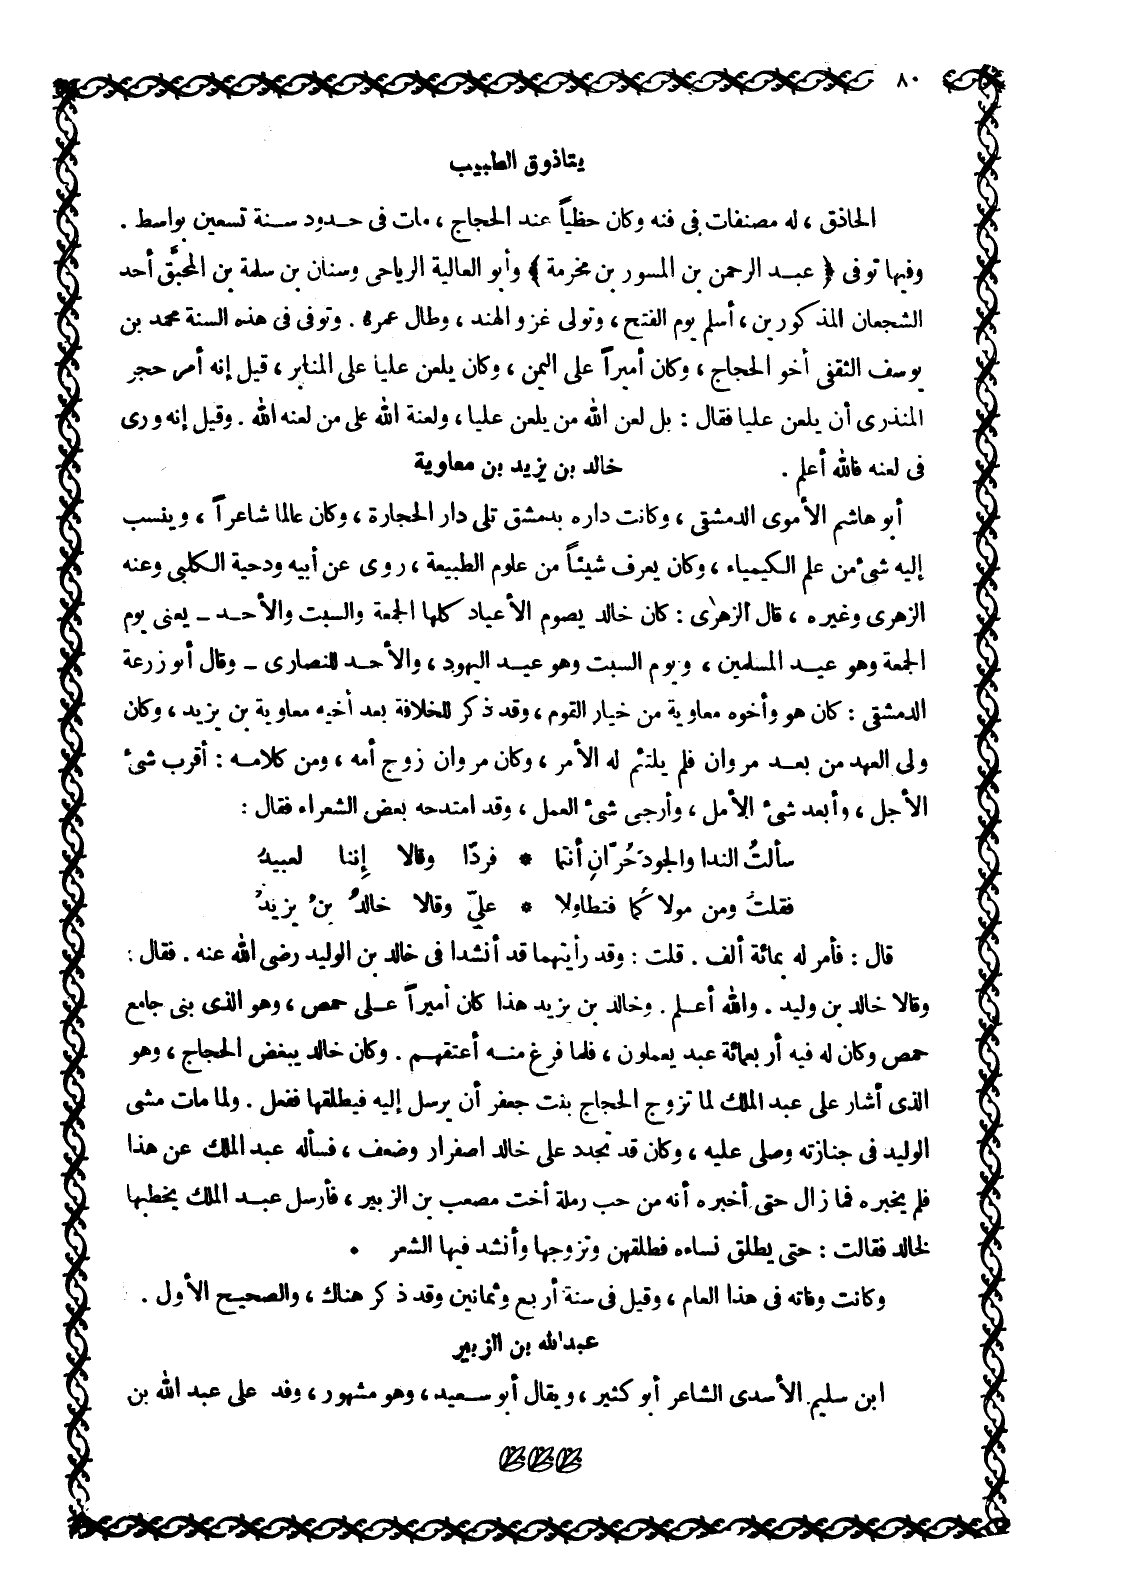 ٨٠
يتاذوق الطبيب
الحاذق ، له مصنفات فى فنه وكان حظياً عند الحجاج ، مات فى حدود سنة تسعين بواسط .
وفيها توفى ﴿ عبد الرحمن بن المسور بن مخرمة ﴾ وأبو العالية الرياحى وسنان بن سلمة بن المحبَّق أحد
الشجعان المذكورين ، أسلم يوم الفتح ، وتولى غزو الهند ، وطال عمره . وتوفى فى هذه السنة محمد بن
يوسف الثقفى أخو الحجاج ، وكان أميراً على اليمن ، وكان يلعن عليا على المنابر ، قيل إنه أمر حجر
المنذرى أن يلعن عليا فقال : بل لعن الله من يلعن عليا ، ولعنة الله على من لعنه الله . وقيل إنه ورى
فى لعنه فالله أعلم . خالد بن يزيد بن معاوية
أبو هاشم الأموى الدمشقى ، وكانت داره بدمشق تلى دار الحجارة ، وكان عالما شاعراً ، وينسب
إليه شىء من علم الكيمياء ، وكان يعرف شيئاً من علوم الطبيعة ، روى عن أبيه ودحية الكلبى وعنه
الزهرى وغيره ، قال الزهرى : كان خالد يصوم الأعياد كلها الجمعة والسبت والأحد ـ يعنى يوم
الجمعة وهو عيد المسلمين ، ويوم السبت وهو عيد اليهود ، والأحد للنصارى ـ وقال أبو زرعة
الدمشقى : كان هو وأخوه معاوية من خيار القوم ، وقد ذكر للخلافة بعد أخيه معاوية بن يزيد ، وكان
ولى العهد من بعد مروان فلم يلتئم له الأمر ، وكان مروان زوج أمه ، ومن كلامه : أقرب شىء
الأجل ، وأبعد شىء الأمل ، وأرجى شىء العمل ، وقد امتدحه بعض الشعراء فقال :
سألتُ الندا والجود حُرّانِ أنتما * فردّا وقالا إننا لعبيدُ
فقلتُ ومن مولاكُما فتطاولا * عليّ وقالا خالدُ بنُ يزيدُ
قال : فأمر له بمائة ألف . قلت : وقد رأيتهما قد أنشدا فى خالد بن الوليد رضى الله عنه . فقال :
وقالا خالد بن وليد . والله أعلم . وخالد بن يزيد هذا كان أميراً على حمص ، وهو الذى بنى جامع
حمص وكان له فيه أربعمائة عبد يعملون ، فلما فرغ منه أعتقهم . وكان خالد يبغض الحجاج ، وهو
الذى أشار على عبد الملك لما تزوج الحجاج بنت جعفر أن يرسل إليه فيطلقها ففعل . ولما مات مشى
الوليد فى جنازته وصلى عليه ، وكان قد تجدد على خالد اصفرار وضعف ، فسأله عبد الملك عن هذا
فلم يخبره فما زال حتى أخبره أنه من حب رملة أخت مصعب بن الزبير ، فأرسل عبد الملك يخطبها
لخالد فقالت : حتى يطلق نساءه فطلقهن وتزوجها وأنشد فيها الشعر .
وكانت وفاته فى هذا العام ، وقيل فى سنة أربع وثمانين وقد ذكر هناك ، والصحيح الأول .
عبد الله بن الزبير
ابن سليم الأسدى الشاعر أبو كثير ، ويقال أبو سعيد ، وهو مشهور ، وفد على عبد الله بن